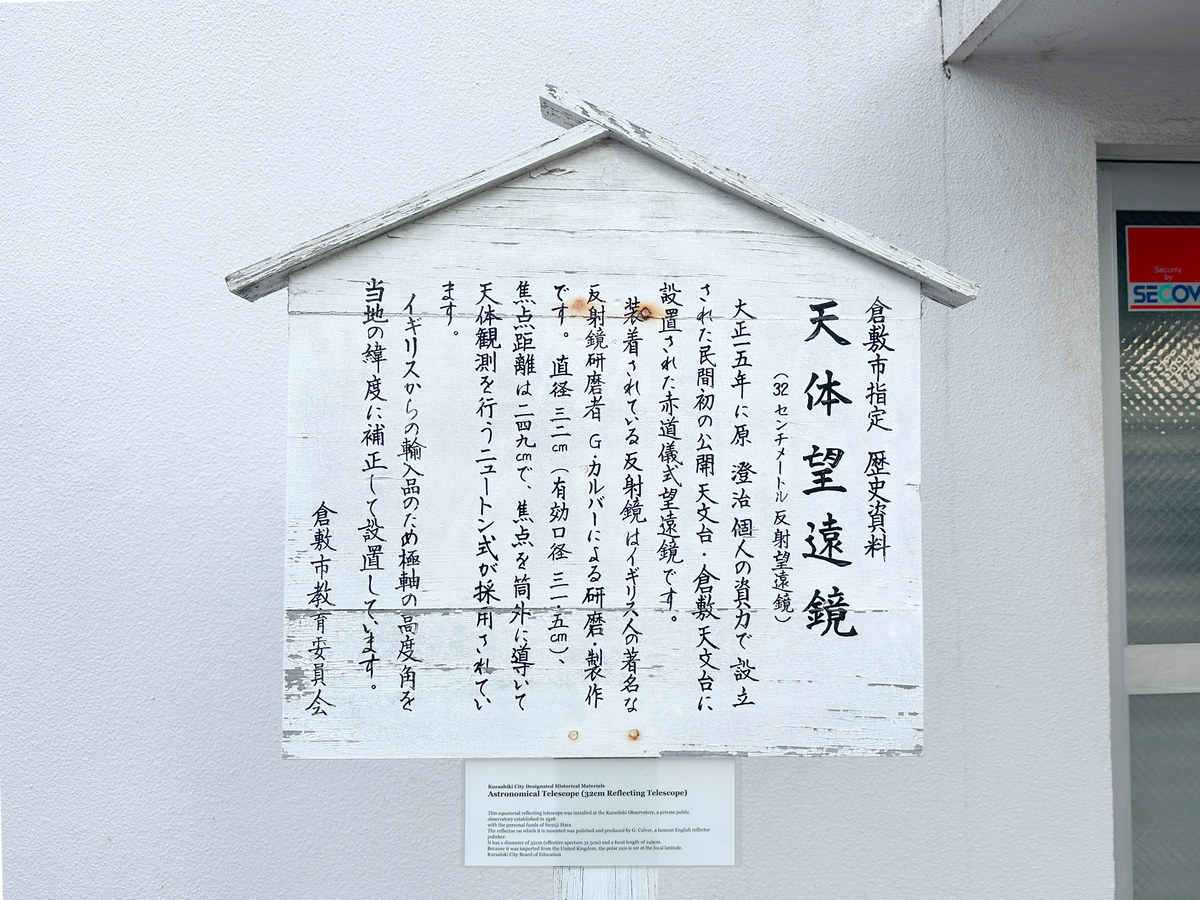 倉敷市指定 歴史資料
天体望遠鏡
（32センチメートル反射望遠鏡）
大正一五年に原 澄治個人の資力で設立
された民間初の公開天文台・倉敷天文台に
設置された赤道儀式望遠鏡です。
装着されている反射鏡はイギリス人の著名な
反射鏡研磨者 G・カルバーによる研磨・製作
です。直径三二㎝（有効口径 三一・五㎝）、
焦点距離は二四九㎝で、焦点を筒外に導いて
天体観測を行うニュートン式が採用されてい
ます。
イギリスからの輸入品のため極軸の高度角を
当地の緯度に補正して設置しています。
倉敷市教育委員会
Kurashiki City Designated Historical Materials
Astronomical Telescope (32cm Reflecting Telescope)
This equatorial reflecting telescope was installed at the Kurashiki Observatory, a private public
observatory established in 1926
with the personal funds of Sumiji Hara.
The reflector on which it is mounted was polished and produced by G. Calver, a famous English reflector
polisher.
It has a diameter of 32cm (effective aperture 31.5cm) and a focal length of 249cm.
Because it was imported from the United Kingdom, the polar axis is set at the local latitude.
Kurashiki City Board of Education
Security
by
SECOM